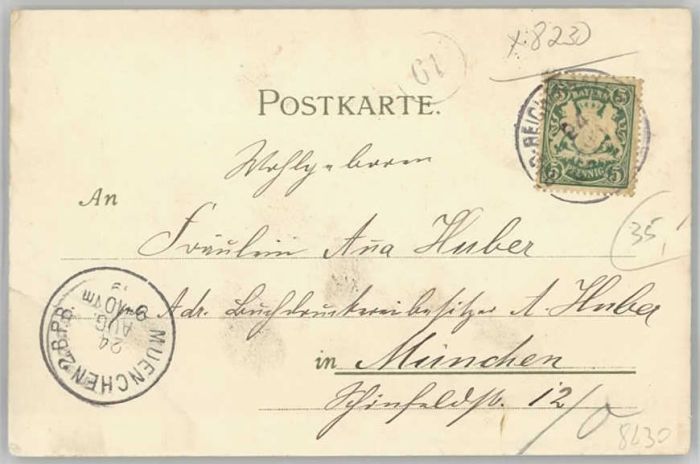 x 8230
POSTKARTE.
5 BAYERN 5
5 PFENNIG 5
24
Wohlgeboren
An
Fräulein Ana Huber
35,
Adr. Buchdruckereibesitzer A Huber
in München
Schönfeldst. 12/0
8230
MUENCHEN 2.B.P.B.
24
AUG.
9-10 Vm